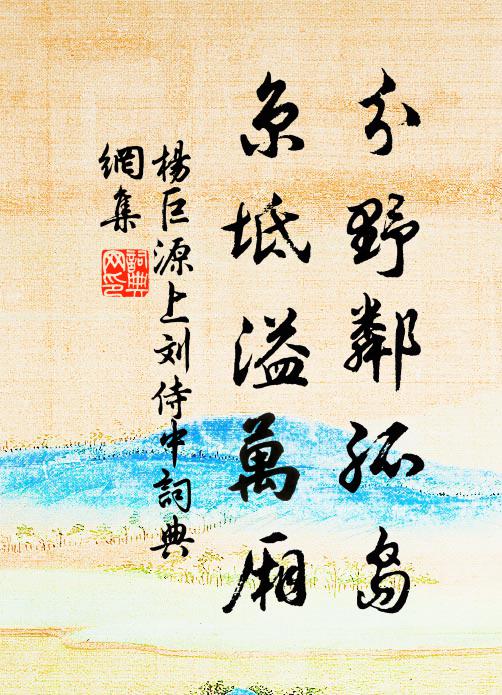 分野鄰孤島
京坻溢萬廂
楊巨源上刘侍中詞典
網集
詞典
网印